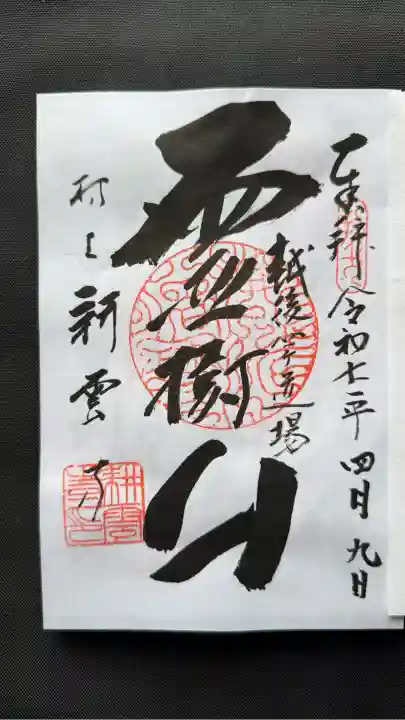 奉拝 令和七年四月九日
越後 道場
霊樹山
村上 耕雲寺